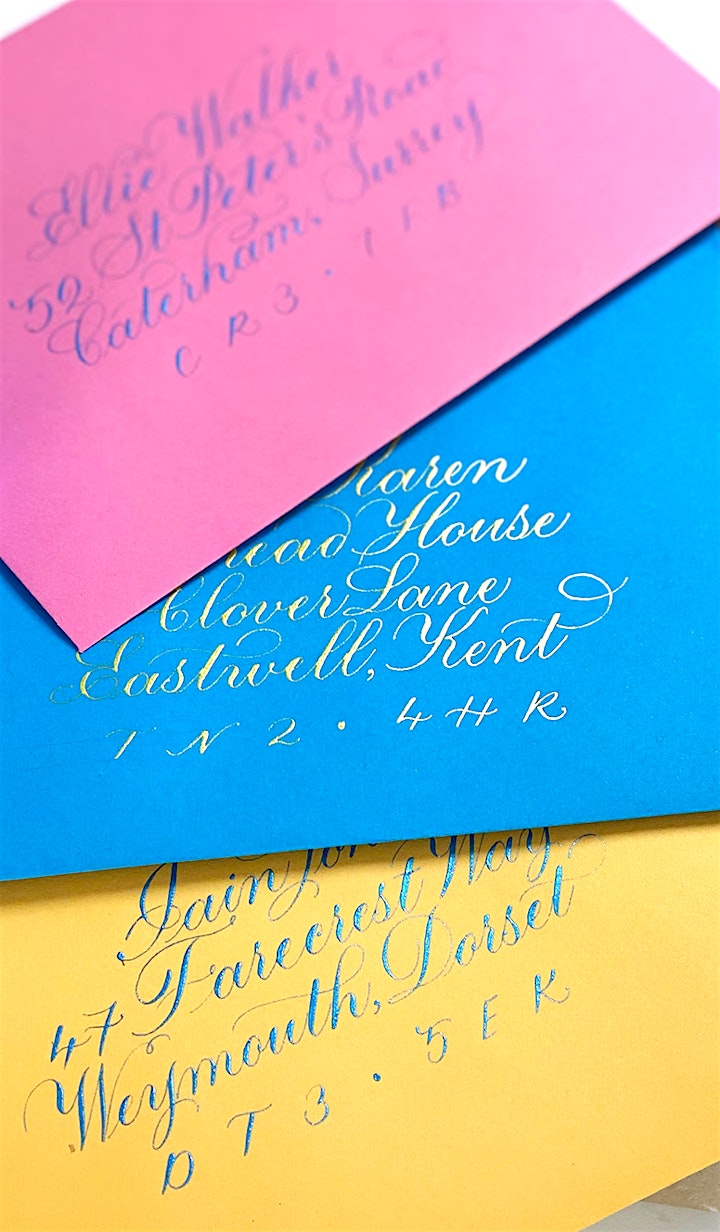 Ellie Walker
52 St Peter's Road
Caterham, Surrey
CR3 · 7FB
Karen
House
Clover Lane
Eastwell, Kent
TN2 · 4HR
Iain
47 Farecrest Way
Weymouth, Dorset
DT3 · 5EK